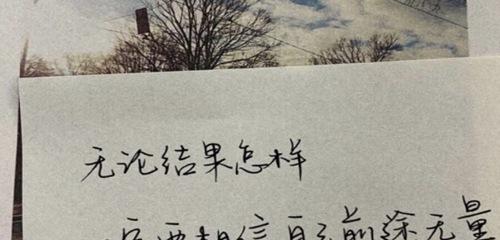 无论结果怎样
一定要相信自己前途无量